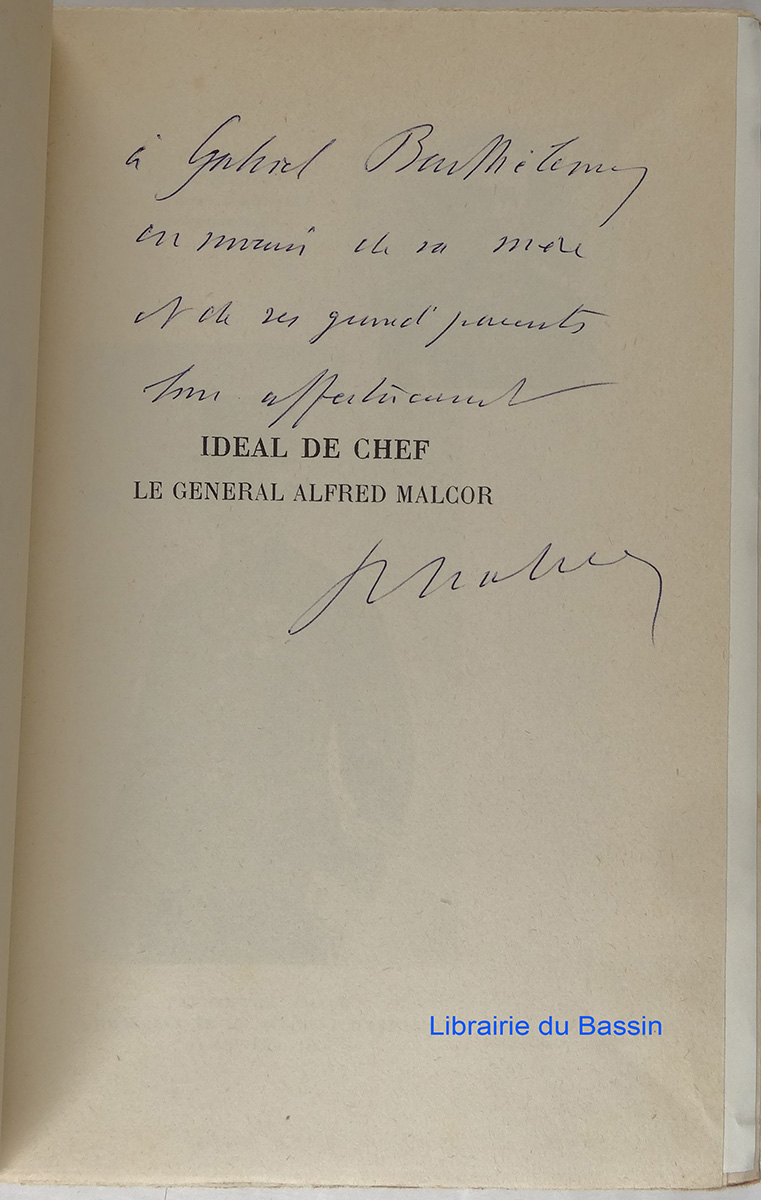 à Gabriel Barthélemy
en souvenir de sa mère
et de ses grand' parents
affectueusement
IDEAL DE CHEF
LE GENERAL ALFRED MALCOR
Librairie du Bassin